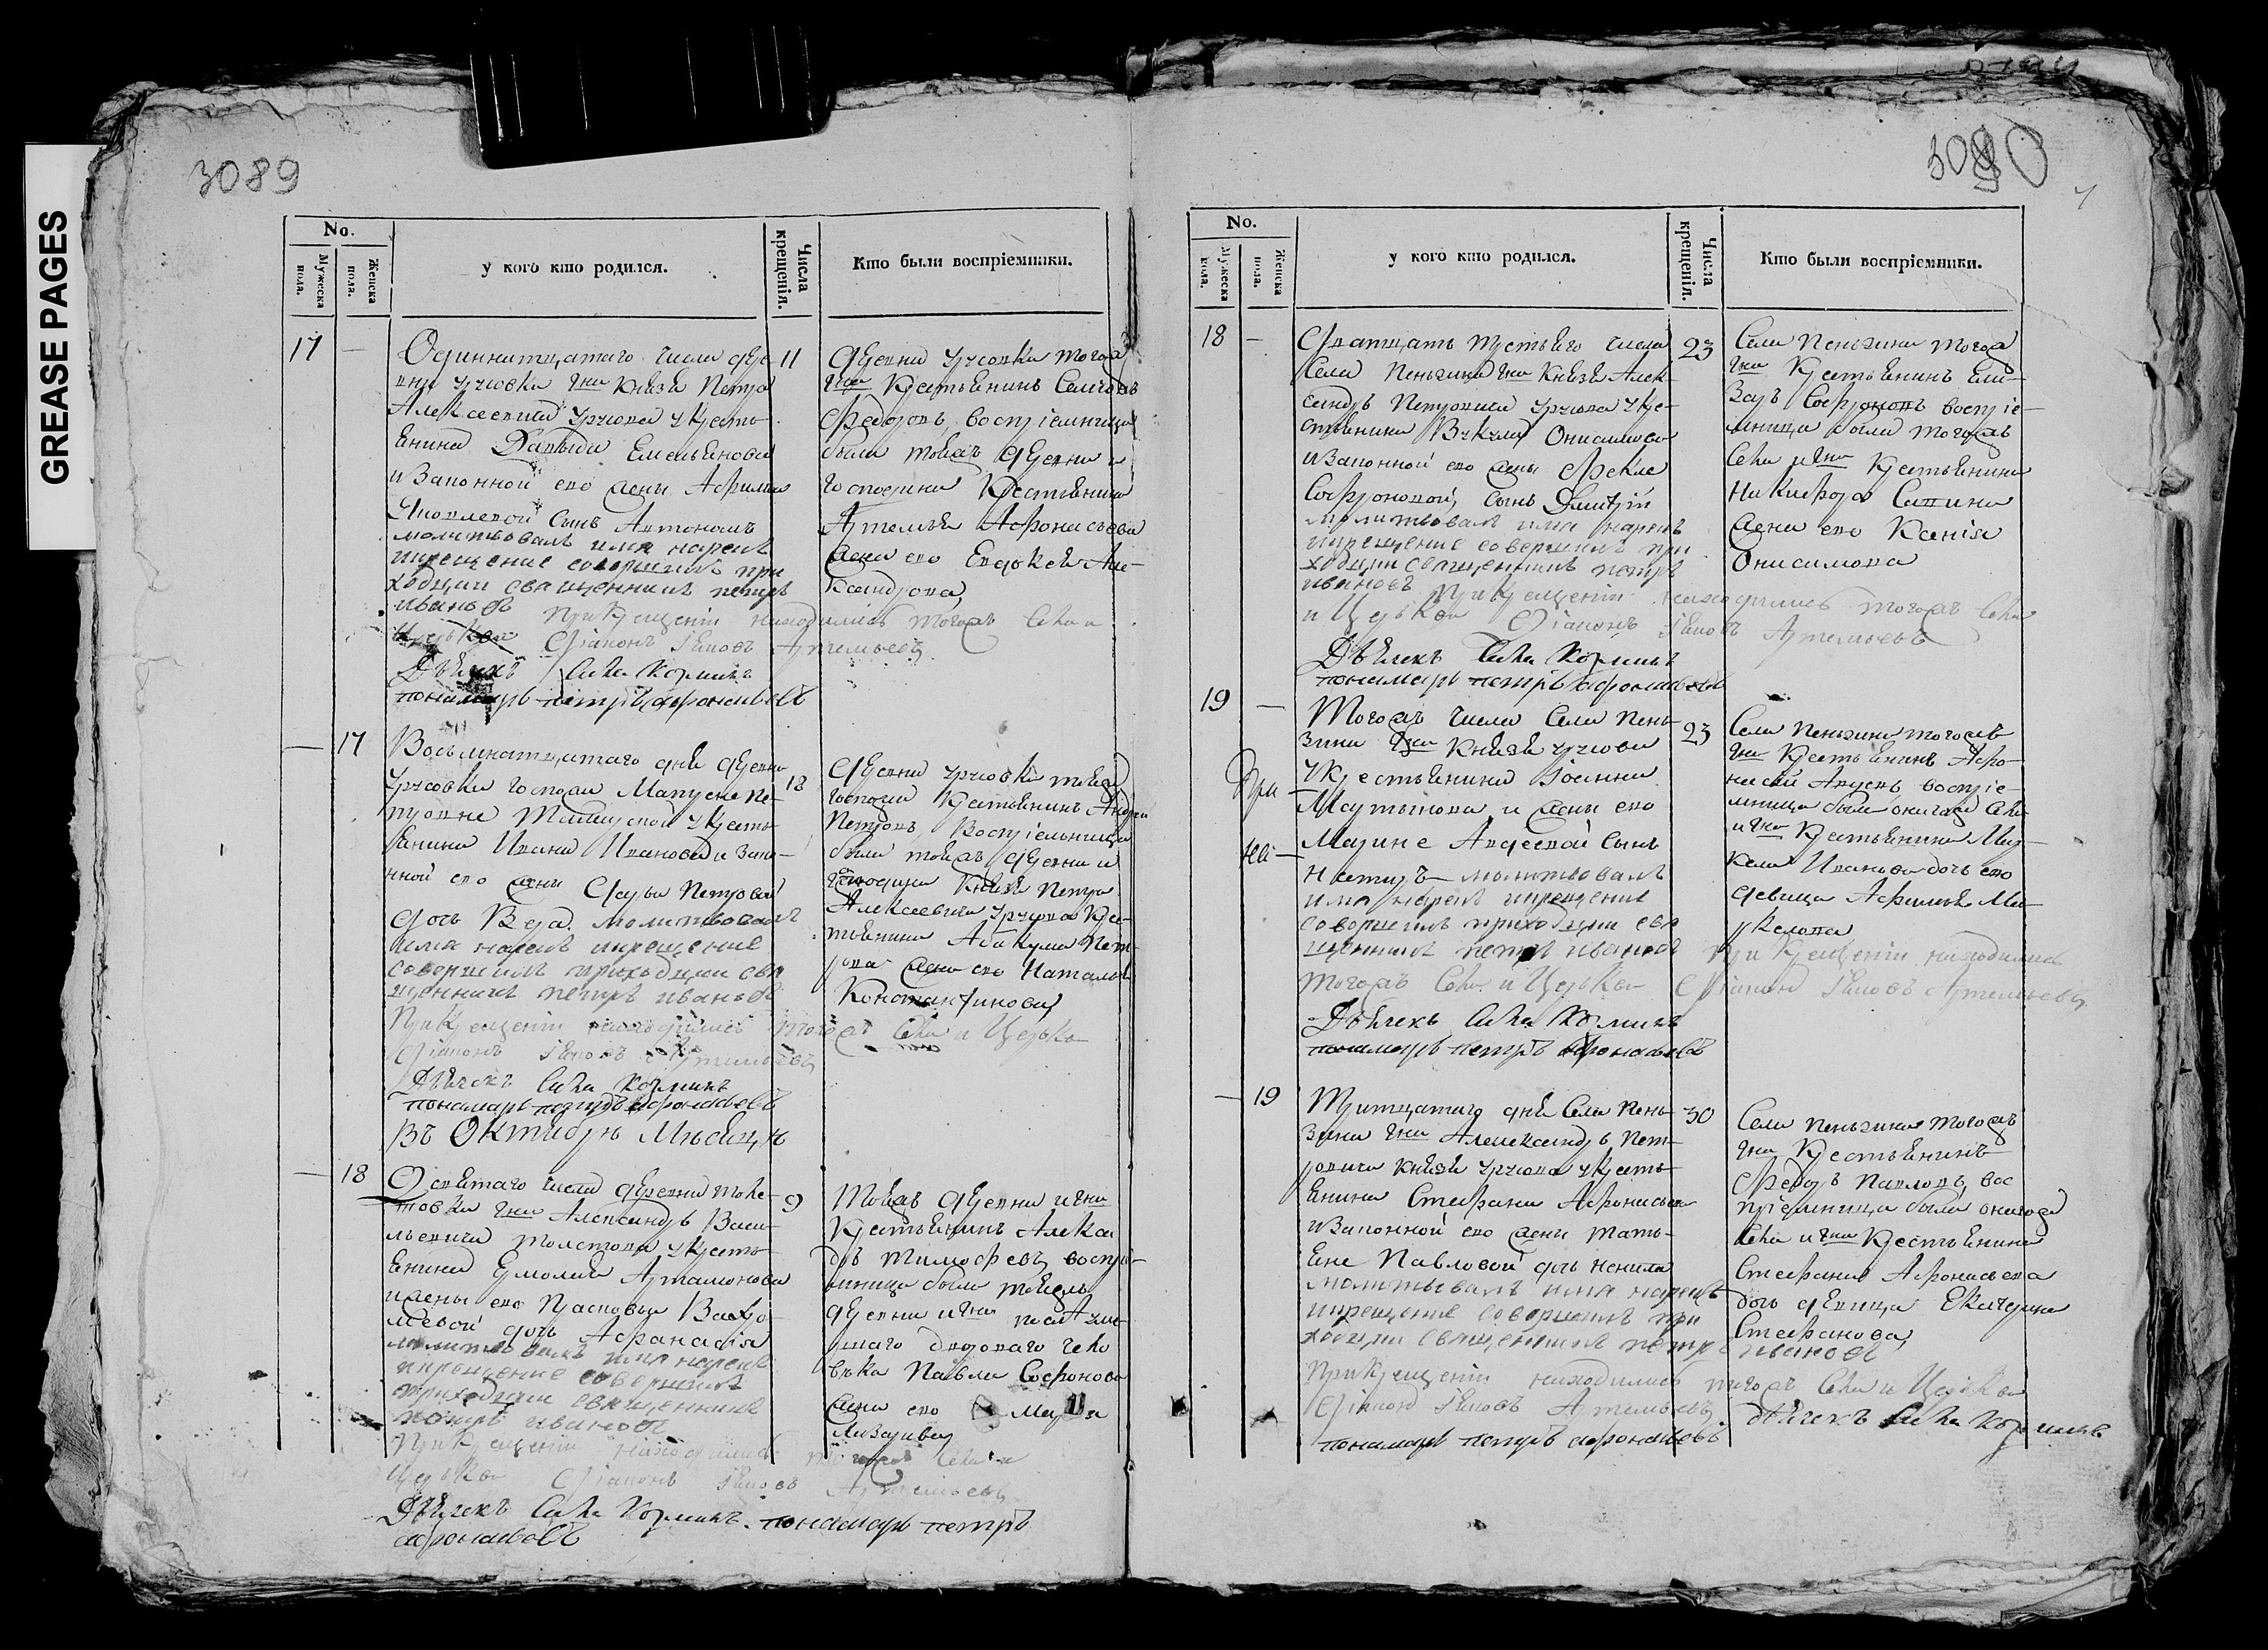 GREASE PAGES
3089
No.
Мужеска пола.
Женска пола.
у кого кто родился.
Числа крещенія.
Кто были воспріемники.
17
Одиннатцатаго числа дере-
вни Урусовки Князя Петра
Алексеевича Урусова у кресть-
янина Давыда Емельянова
и законной его жены Афимьи
Яковлевой сынъ Автономъ
молитвовалъ имя нарекъ
икрещение совершилъ при
ходции священникъ петръ
ивановъ при крещеніи находились тогожъ села и
Церькви Діаконъ Артемьевъ
Дьячекъ Сава Корминъ
понамарь петръ афонасьевъ
11
деревни Урусовки тогож
гдна крестьянинъ
Федоровъ воспріемница
была тояжъ деревни и
господина крестьянина
Артемья Афонасьева
жена его Евдокея Але-
ксандрова
17
Восьмнатцатаго дня деревни
Урусовки госпожи Пе-
тровне у кресть-
янина Ивана Иванова и зако-
нной его жены Дарьи Петровой
дочь Вера молитвовалъ
имя нарекъ икрещение
совершилъ приходции свя
щенникъ петръ ивановъ
При крещеніи находились тогожъ села и Церькви
Діаконъ Артемьевъ
Дьячекъ Сава Корминъ
понамарь петръ афонасьевъ
18
деревни Урусовки тояж
госпожи крестьянинъ Андрей
Петровъ Воспріемница
была тояжъ деревни и
господина Князя Петра
Алексеевича Урусова кре-
стьянина Абакума Пет-
рова жена его Наталья
Константинова
Въ Октябре Месяце
18
Девятаго числа деревни
гдна Александръ Васи-
льевича Толстова у кресть-
янина Ермолая Артамонова
и жены его Прасковьи
дочь Афанасія
молитвовалъ имя нарекъ
икрещение совершилъ
приходции священникъ
петръ ивановъ
При крещеніи находились тогожъ села и
Церькви Діаконъ Артемьевъ
Дьячекъ Сава Корминъ. понамарь петръ
афонасьевъ
9
Тояжъ деревни и гдна
крестьянинъ Алексан
дръ Тимофеевъ воспрі-
емница была тояжъ
деревни и гдна
двороваго чело
века Павла Софонова
жена его
No.
Мужеска пола.
Женска пола.
у кого кто родился.
Числа крещенія.
Кто были воспріемники.
18
Дватцать третьяго числа
Села Пеньзина гдна Князя Алек-
сандръ Петровича Урусова у кре-
стьянина Вукула Онисимова
и законной его жены Феклы
Софроновой, сынъ Дмитрій
молитвовалъ имя нарекъ
икрещение совершилъ при
ходции священникъ петръ
ивановъ При крещеніи находились тогожъ села
и Церькви Діаконъ Артемьевъ
Дьячекъ Сава Корминъ
понамарь петръ афонасьевъ
23
Села Пеньзина тогож
гдна крестьянинъ Ели-
заръ Софроновъ воспріе-
мница была тогожъ
села и гдна крестьянина
Никифора Савина
жена его Ксенія
Онисимова
19
Тогожъ числа Села Пень-
зина гдна Князя Урусова
у крестьянина Іоанна
Мартынова и жены его
Марине Авдеевой сынъ
молитвовалъ
имя нарекъ икрещение
совершилъ приходции свя
щенникъ петръ ивановъ при крещеніи находились
тогожъ села и Церькви Діаконъ Артемьевъ
Дьячекъ Сава Корминъ
понамарь петръ афонасьевъ
23
Села Пеньзина тогожъ
гдна крестьянинъ Афо-
насей Авдеевъ воспріе-
мница была онагож села
и гдна крестьянина Мар-
кела Иванова дочь его
девица Афимья Ма-
ркелова
19
Тритцатаго дня Села Пень-
зина гдна Александръ Пет-
ровича Князя Урусова у кресть-
янина Стефана Афонасьева
и законной его жены Тать-
яне Павловой дочь Ненила
молитвовалъ имя нарекъ
икрещение совершилъ при
ходции священникъ петръ ивановъ
При крещеніи находились тогожъ села и Церькви
Діаконъ Артемьевъ
Дьячекъ Сава Корминъ
понамарь петръ афонасьевъ
30
Села Пеньзина тогожъ
гдна крестьянинъ
Федоръ Павловъ вос
пріемница была онагож
села и гдна крестьянина
Стефана Афонасьева
дочь девица Екатерина
Стефанова